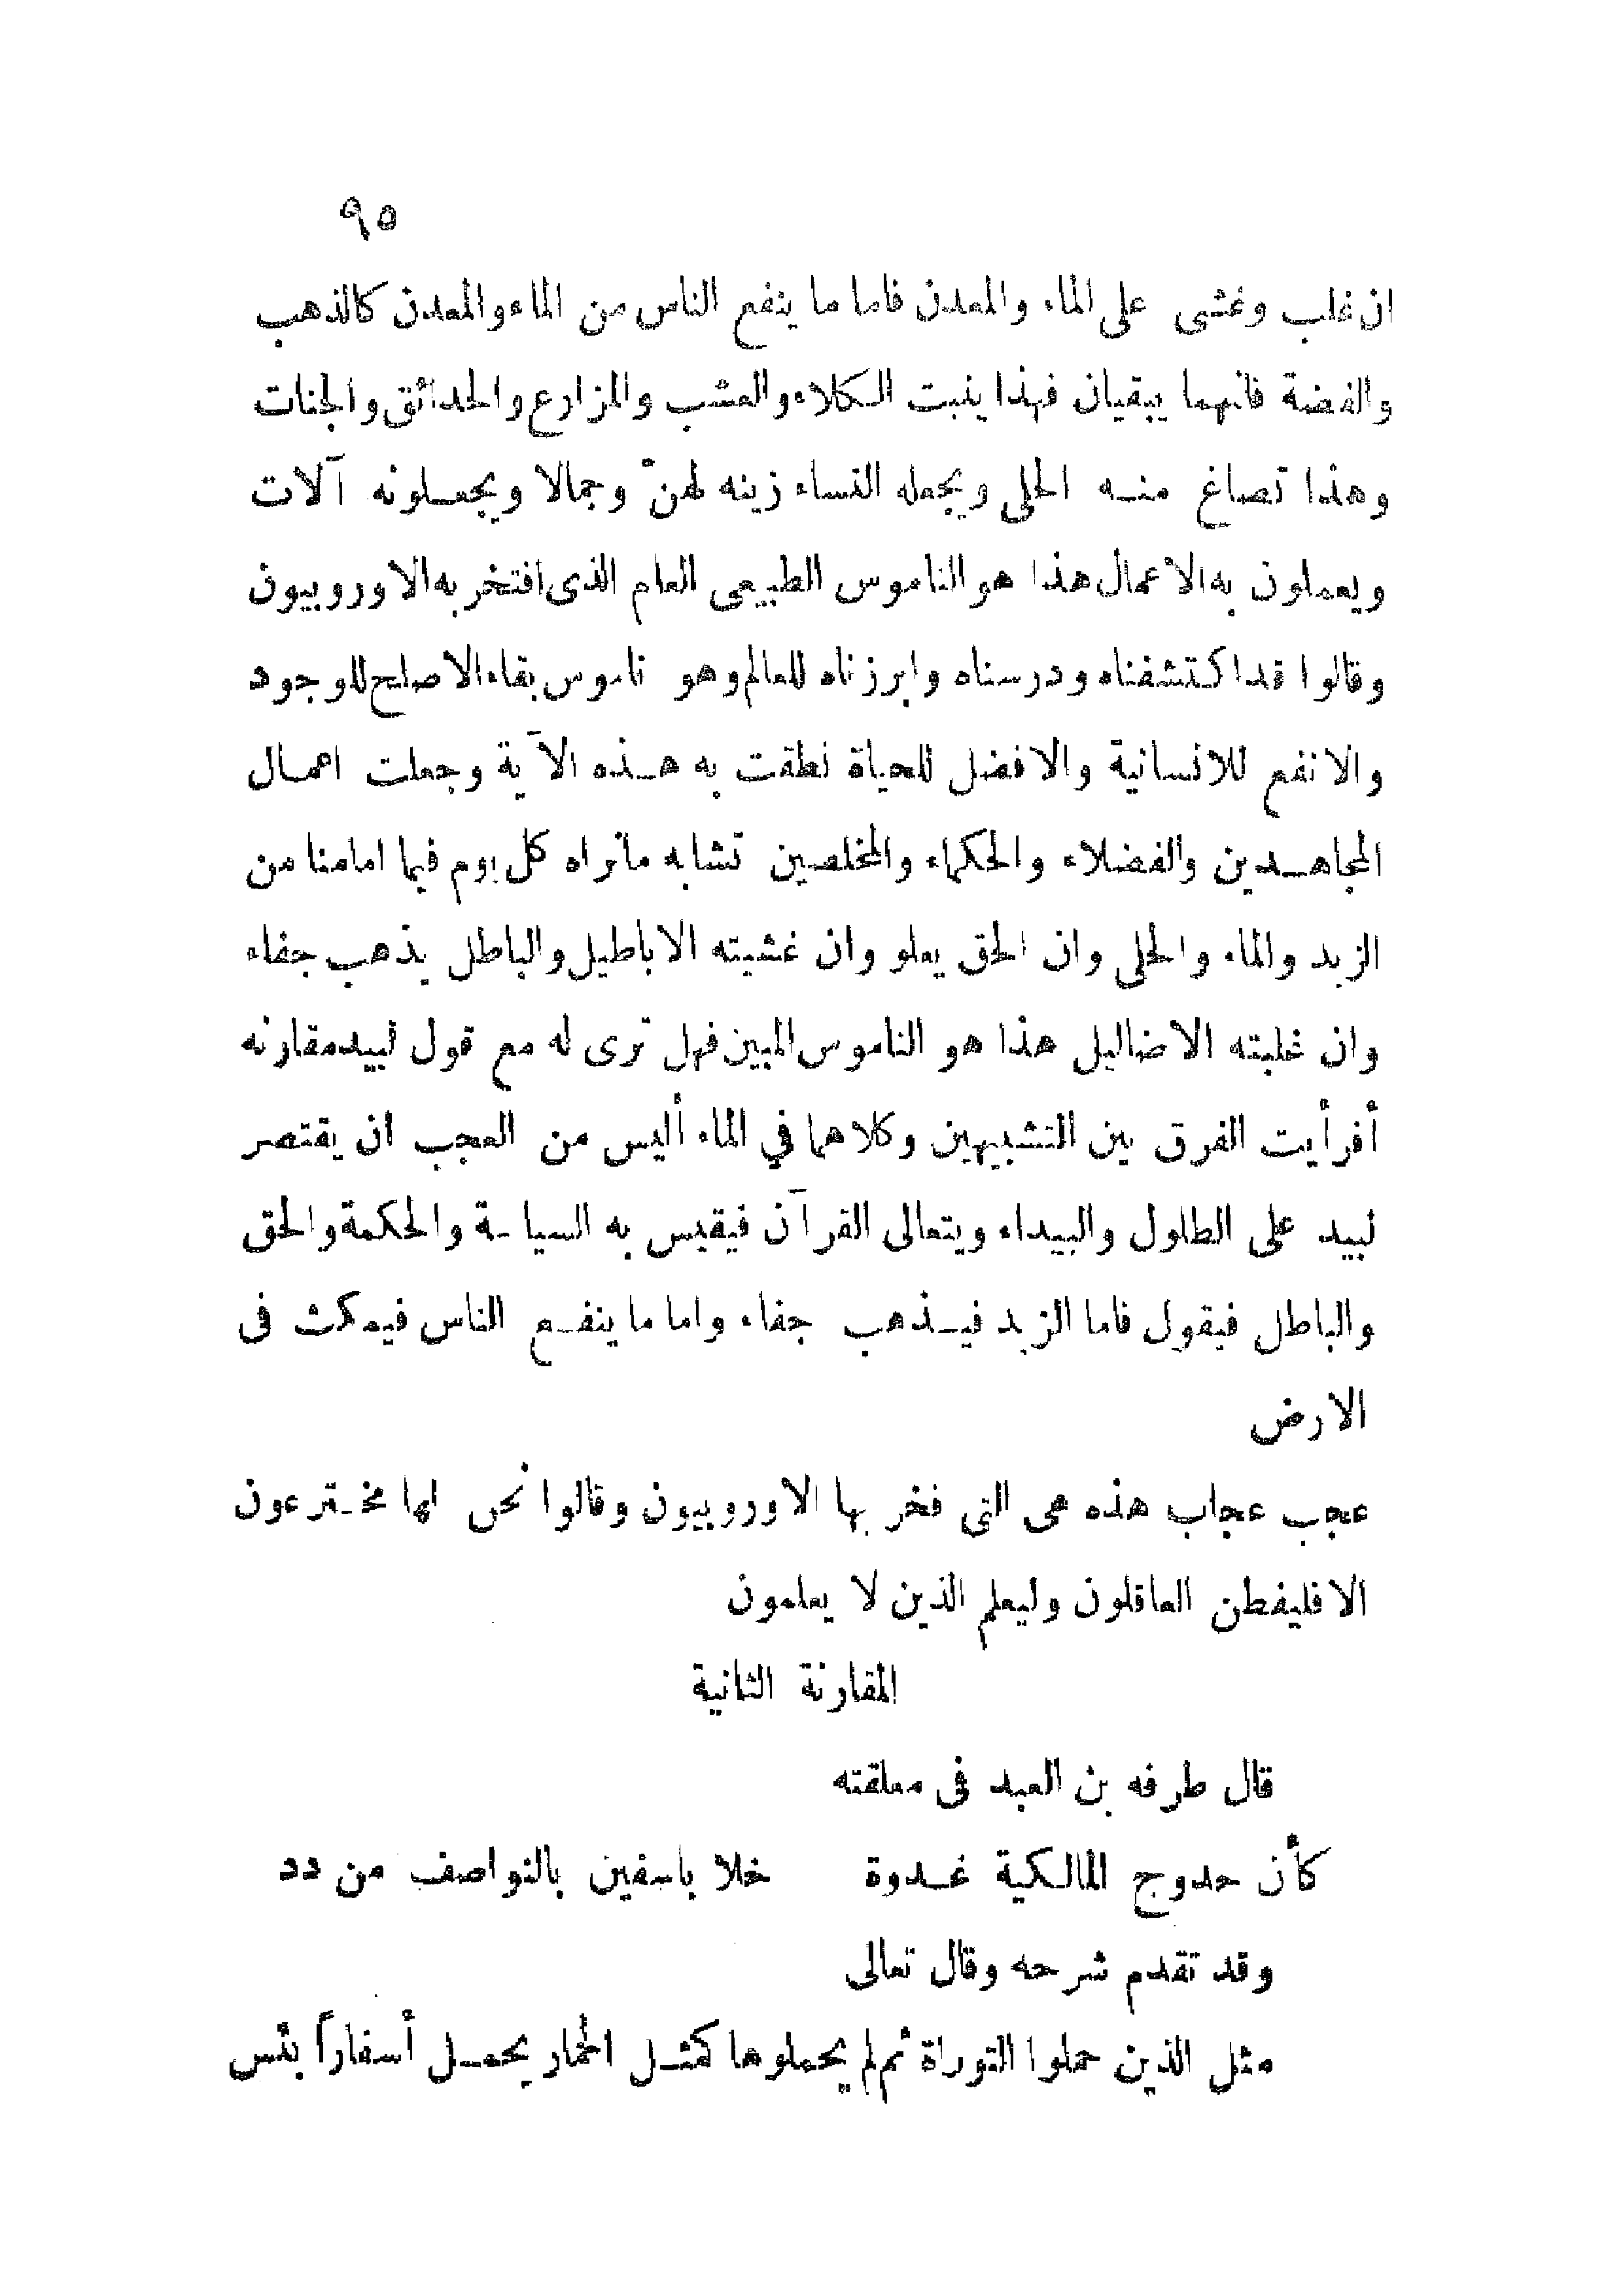 ٩٥
ان غلب وغشى على الماء والمعدن فاما ما ينفع الناس من الماء والمعدن كالذهب
والفضة فانهما يبقيان فهذا ينبت الكلاء والعشب والمزارع والحدائق والجنات
وهذا تصاغ منه الحلى ويجعله النساء زينه لهنّ وجمالا ويجعلونه آلات
ويعملون به الاعمال هذا هو الناموس الطبيعى العام الذى افتخر به الاوروبيون
وقالوا قد اكتشفناه ودرسناه وابرزناه للعالم وهو ناموس بقاء الاصلح للوجود
والانفع للانسانية والافضل للحياة نطقت به هذه الآية وجعلت اعمال
المجاهدين والفضلاء والحكماء والمخلصين تشابه مانراه كل يوم فيما امامنا من
الزبد والماء والحلى وان الحق يعلو وان غشيته الاباطيل والباطل يذهب جفاء
وان غلبته الاضاليل هذا هو الناموس المبين فهل ترى له مع قول لبيد مقارنه
أفرأيت الفرق بين التشبيهين وكلاهما في الماء أليس من العجب ان يقتصر
لبيد على الطلول والبيداء ويتعالى القرآن فيقيس به السياسة والحكمة والحق
والباطل فيقول فاما الزبد فيذهب جفاء واما ما ينفع الناس فيمكث فى
الارض
عجب عجاب هذه هى التى فخر بها الاوروبيون وقالوا نحن لها مخترعون
الا فليفطن العاقلون وليعلم الذين لا يعلمون
المقارنة الثانية
قال طرفه بن العبد فى معلقته
كأن حدوج المالكية غدوة خلا ياسفين بالنواصف من دد
وقد تقدم شرحه وقال تعالى
مثل الذين حملوا التوراة ثم لم يحملوها كمثل الحمار يحمل أسفاراً بئس